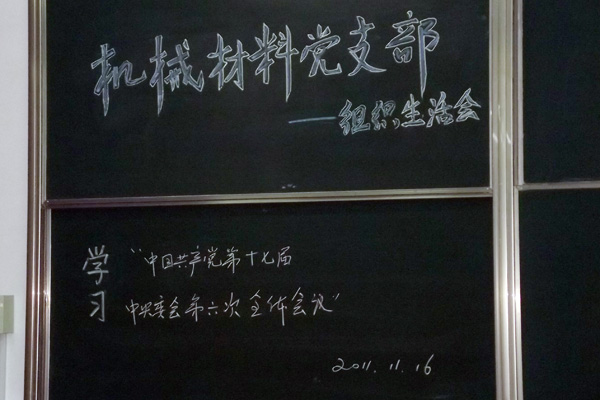 机械材料党支部
——组织生活会
学习
"中国共产党第十七届
中央委会第六次全体会议"
2011.11.16